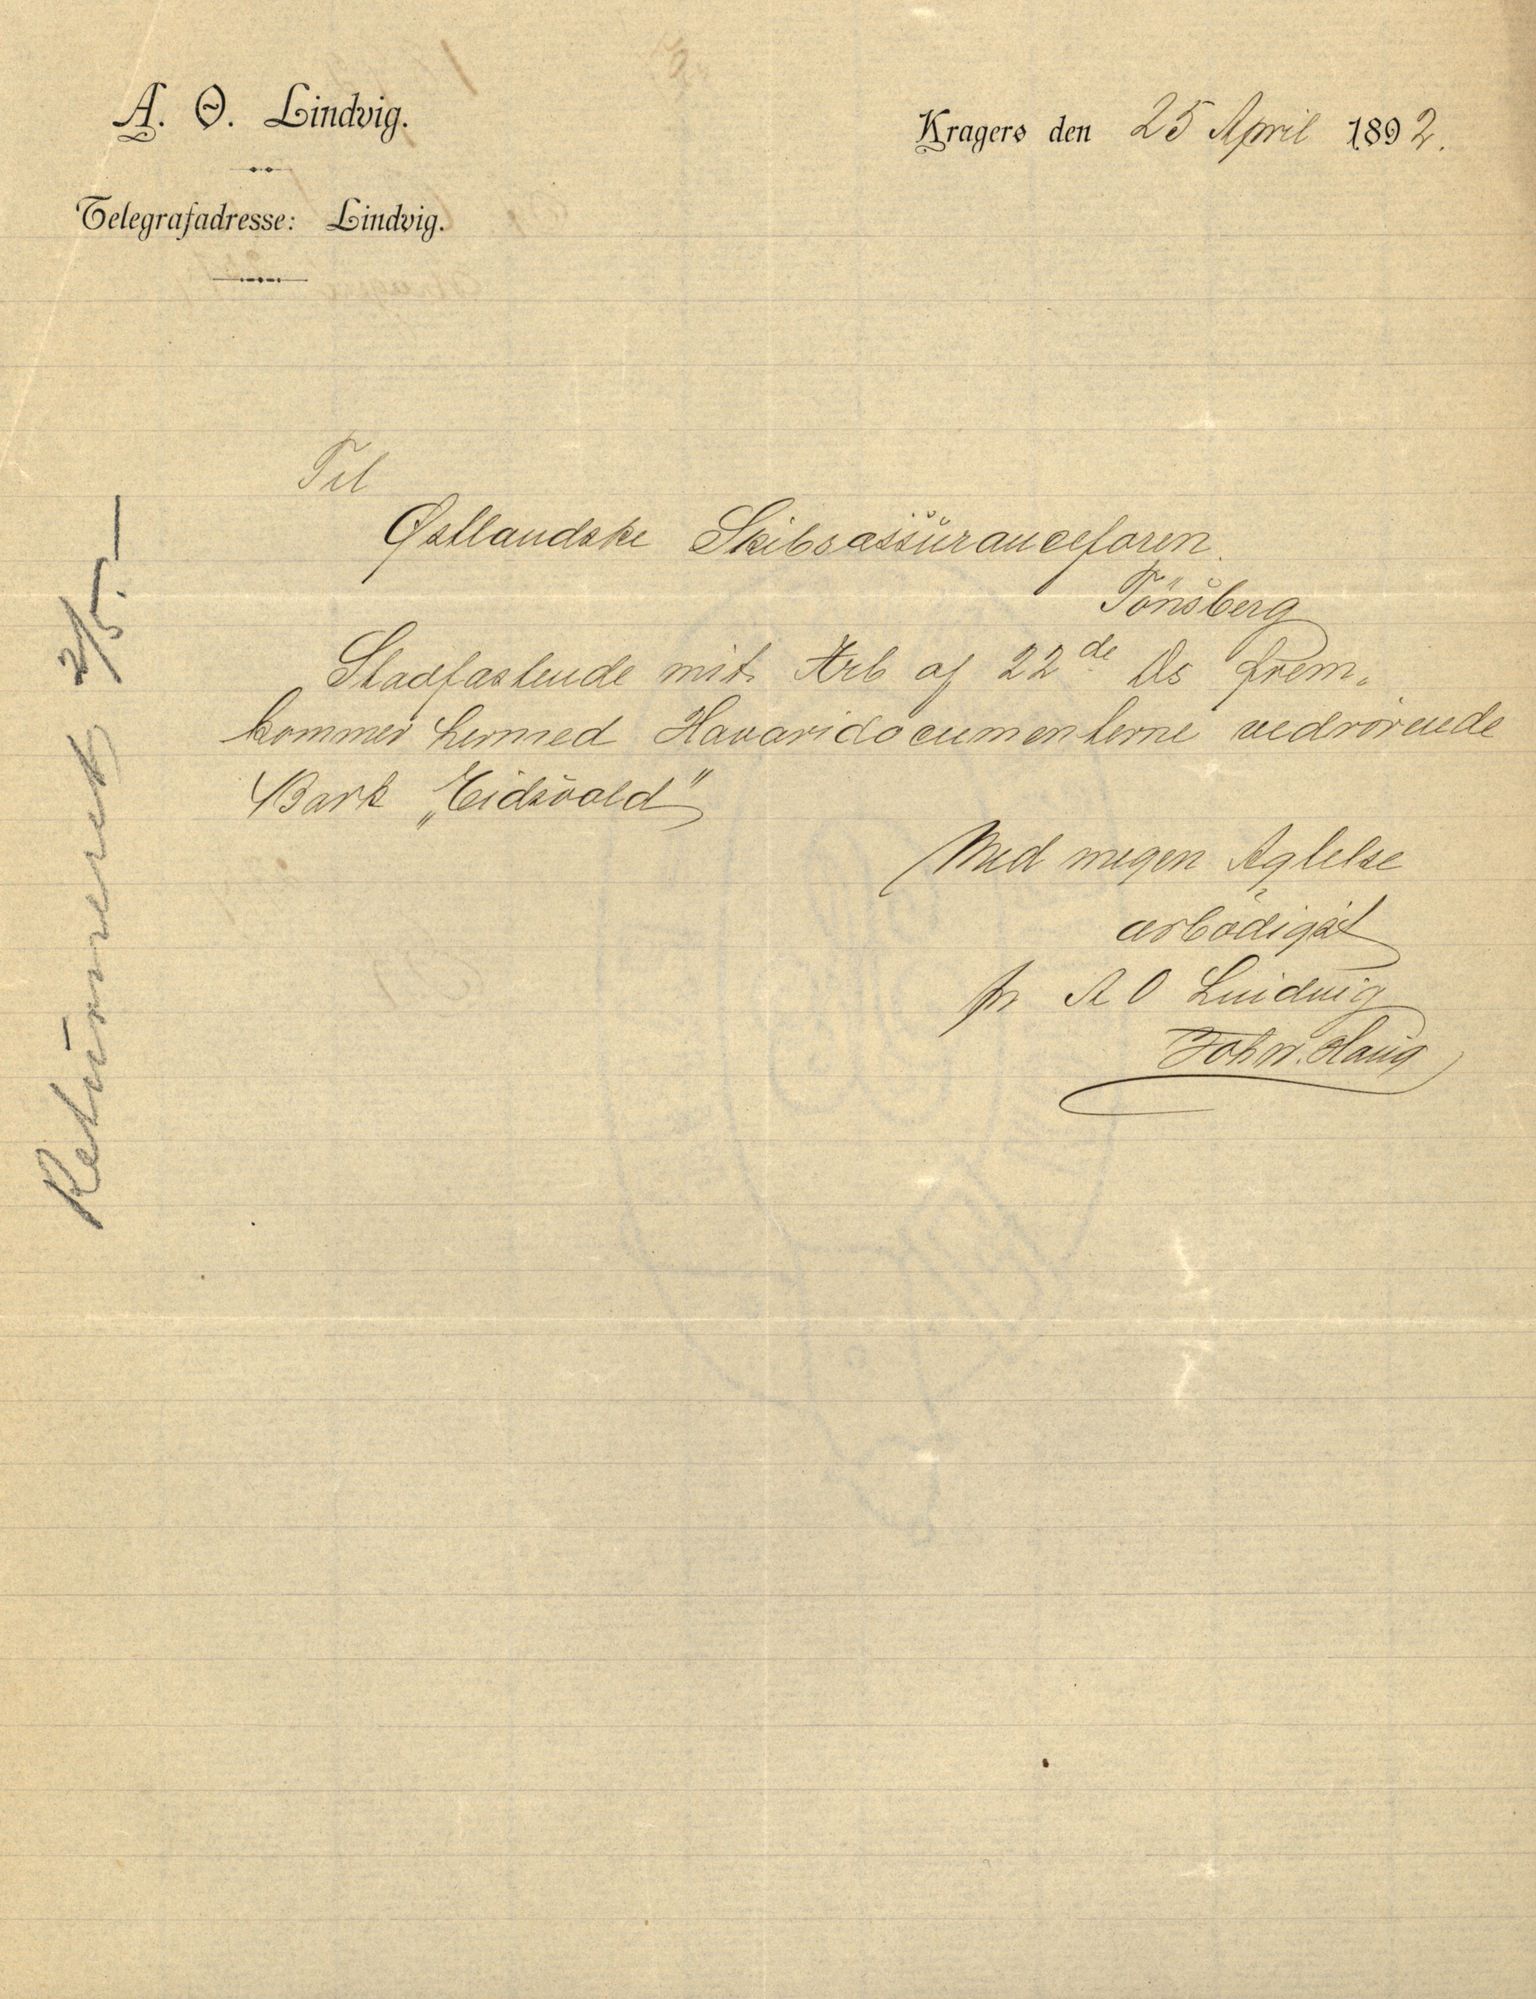 A. O. Lindvig.
Telegrafadresse: Lindvig.
Kragerø den 25 April 1892.
Til
Østlandske Skibsassuranceforen.
Tönsberg
Stadfæstende mit Ærb af 22de Ds frem-
kommer hermed Havaridocumenterne vedrörende
Bark „Eidsvold"
Med megen Agtelse
ærbödigst
pr A O Lindvig
Joh W. Haug
Returneret 2/5.